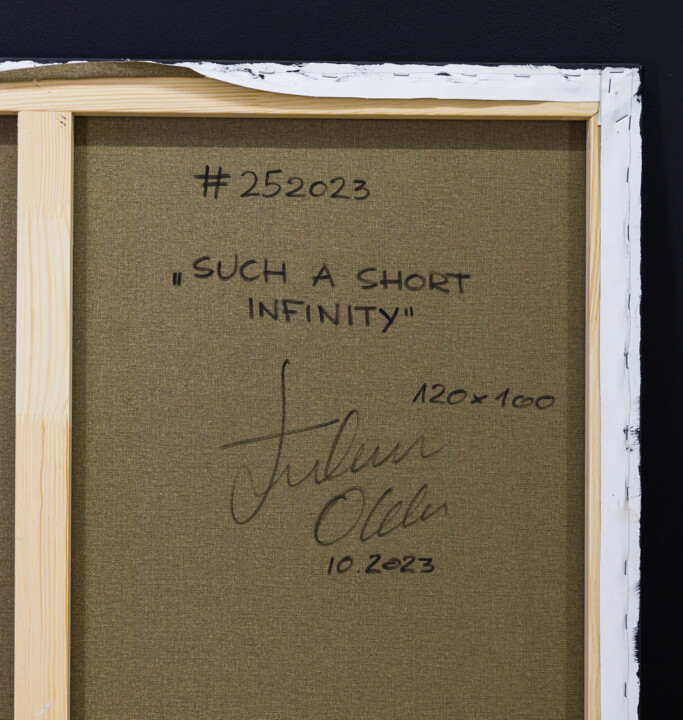 #252023
„SUCH A SHORT
INFINITY"
120x100
10.2023